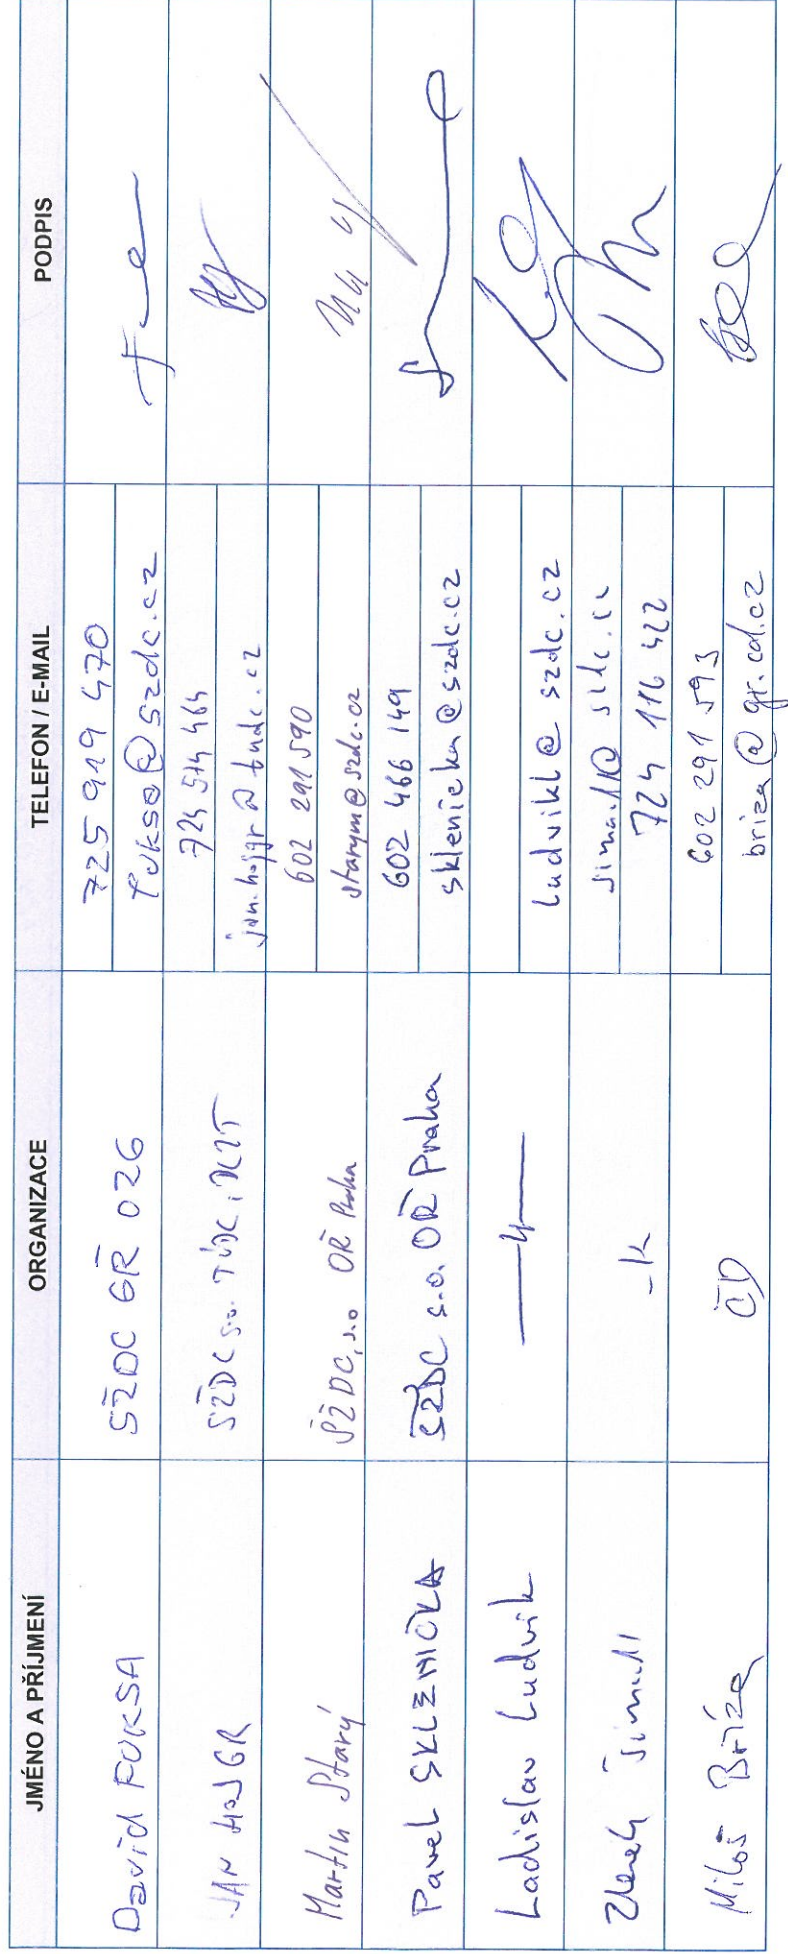 JMÉNO A PŘÍJMENÍ ORGANIZACE TELEFON / E-MAIL PODPIS
David FUKSA SŽDC GŘ O26 725 919 470
fuksa@szdc.cz
JAN HAJGR SŽDC s.o. TÚDC 724 574 464
Martin Starý SŽDC, s.o OŘ Praha 602 291 590
starym@szdc.cz
Pavel SKLENIČKA SŽDC s.o. OŘ Praha 602 466 149
sklenicka@szdc.cz
Ladislav Ludvík —"—
ludvikl@szdc.cz
724 116 422
Miloš Bříza ČD 602 291 593
briza@gr.cd.cz